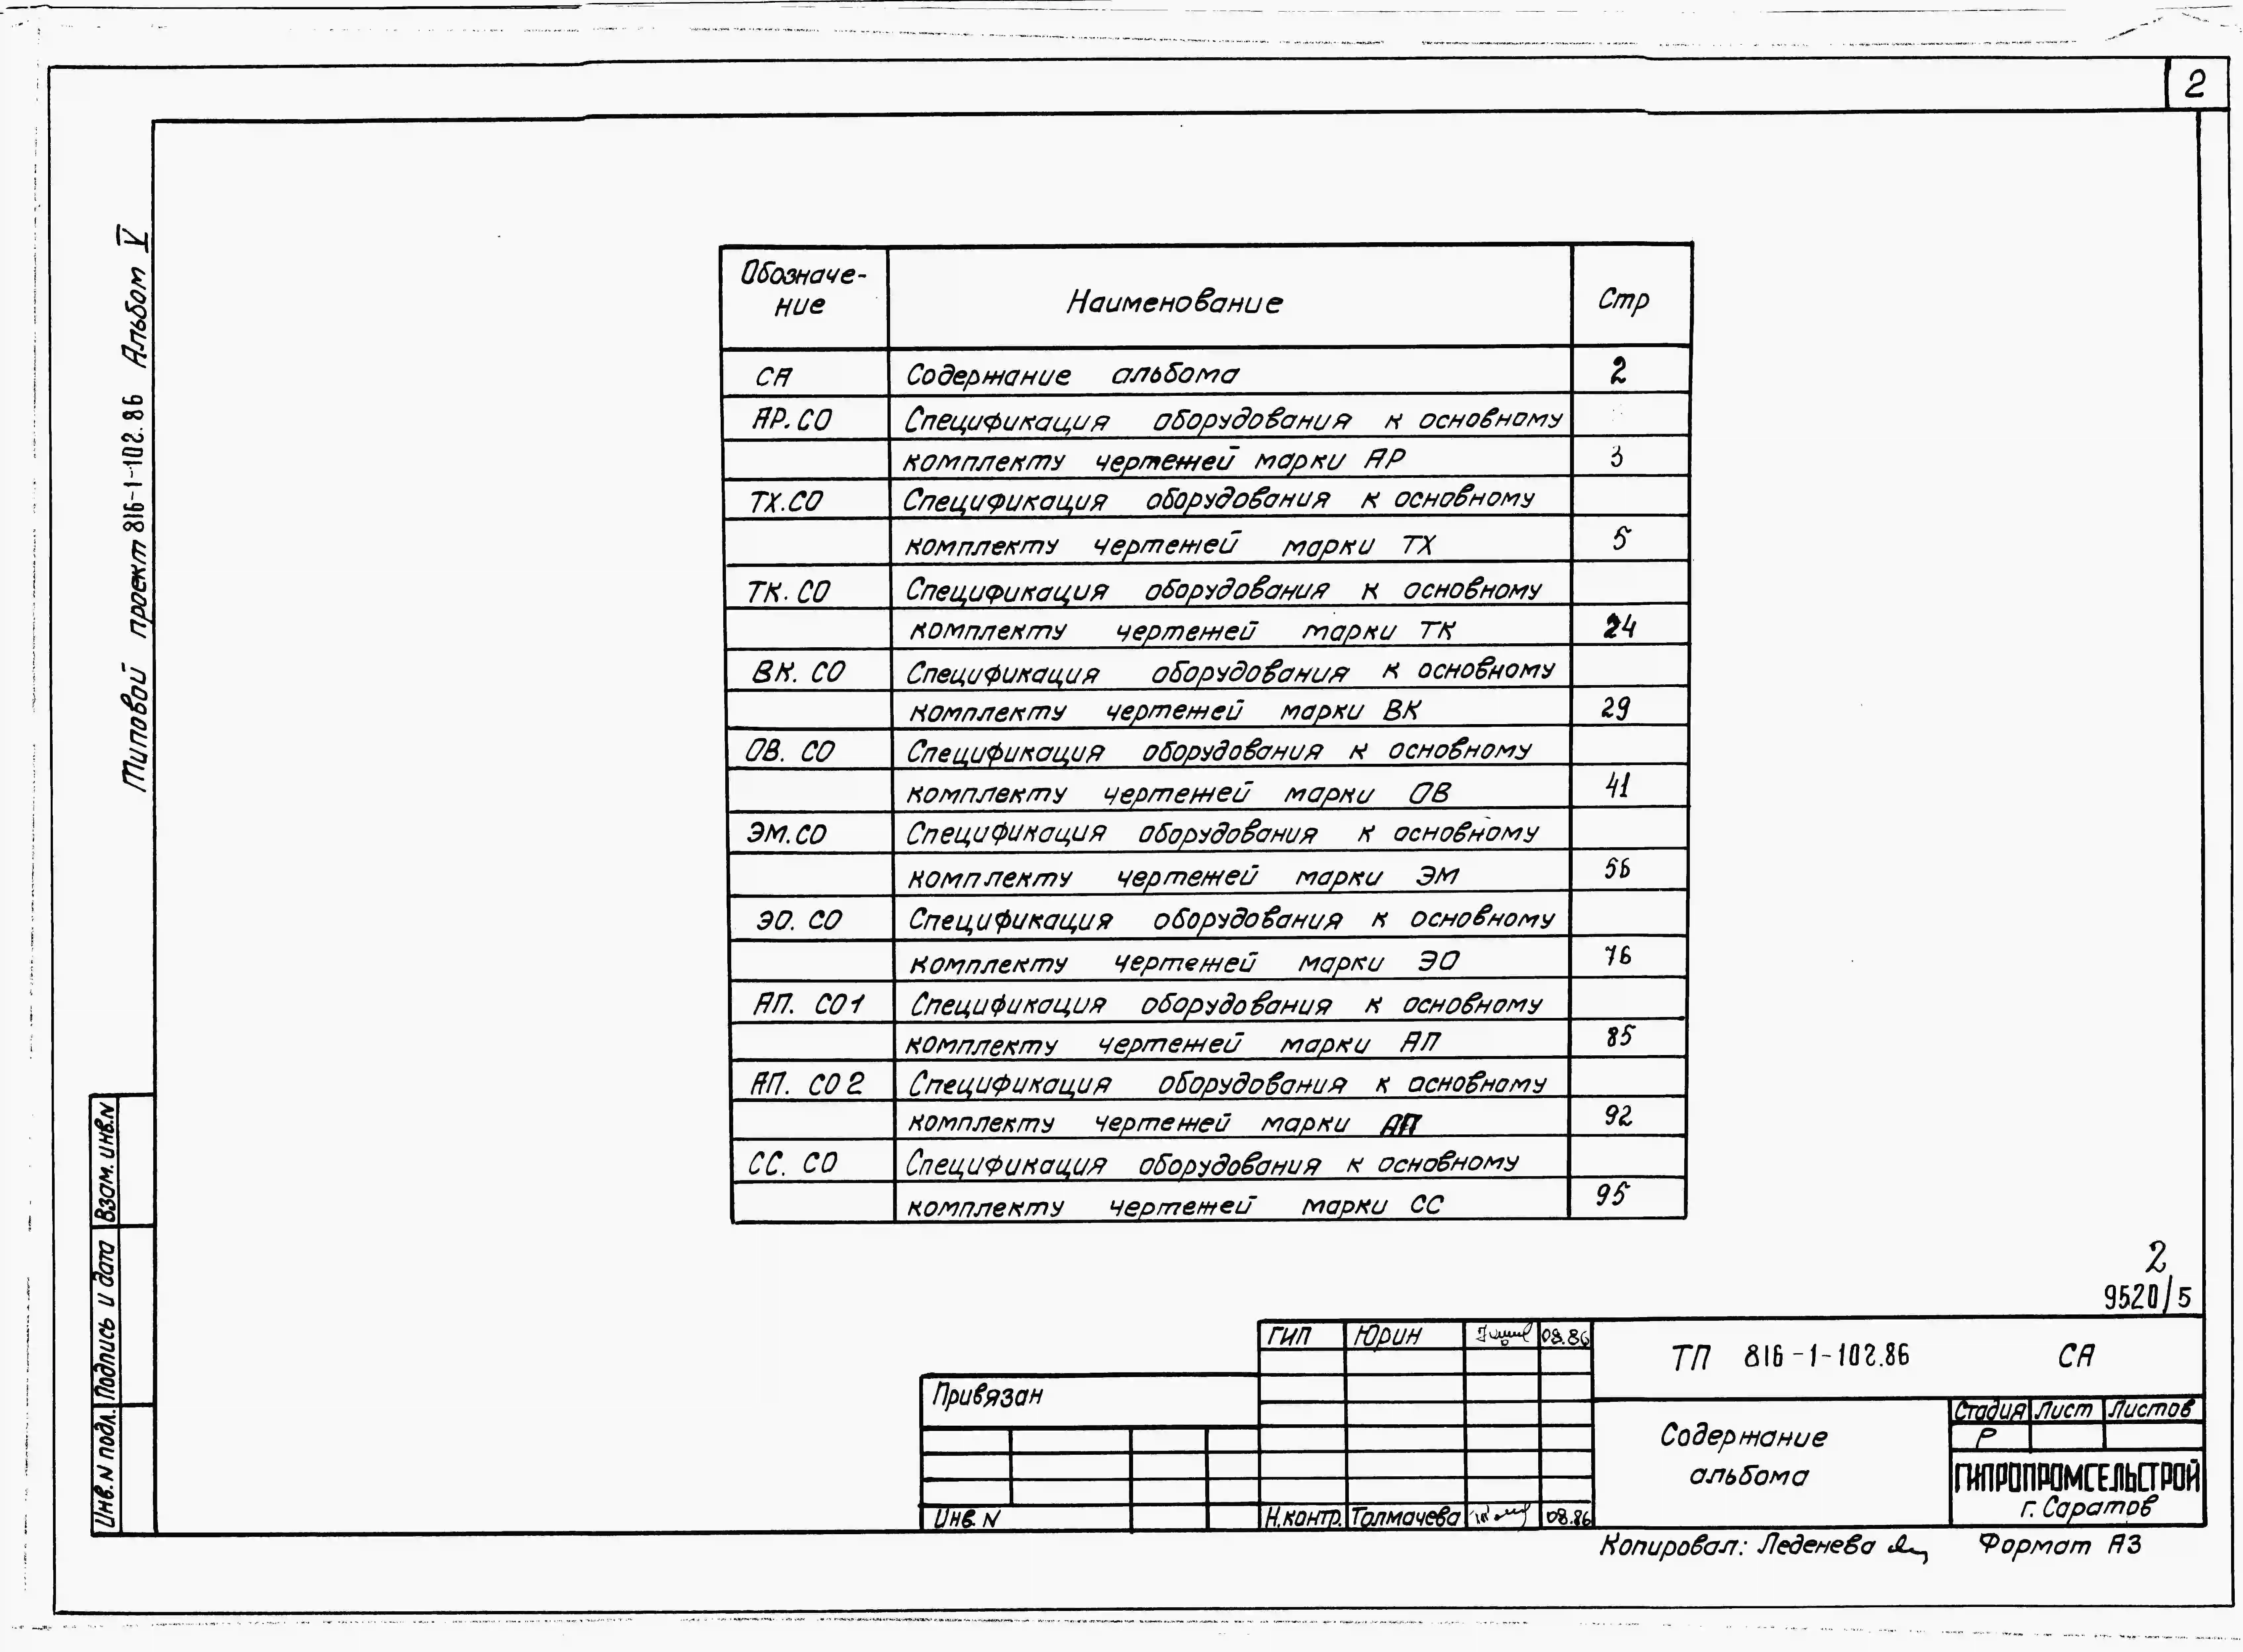 2
Типовой проект 816-1-102.86 Альбом V
Обозначе-
ние
Наименование
Стр
СА Содержание альбома 2
АР.СО Спецификация оборудования к основному
комплекту чертежей марки АР 3
ТХ.СО Спецификация оборудования к основному
комплекту чертежей марки ТХ 5
ТК.СО Спецификация оборудования к основному
комплекту чертежей марки ТК 24
ВК.СО Спецификация оборудования к основному
комплекту чертежей марки ВК 29
ОВ.СО Спецификация оборудования к основному
комплекту чертежей марки ОВ 41
ЭМ.СО Спецификация оборудования к основному
комплекту чертежей марки ЭМ 56
ЭО.СО Спецификация оборудования к основному
комплекту чертежей марки ЭО 76
АП.СО1 Спецификация оборудования к основному
комплекту чертежей марки АП 85
АП.СО2 Спецификация оборудования к основному
комплекту чертежей марки АП 92
СС.СО Спецификация оборудования к основному
комплекту чертежей марки СС 95
Взам. инв.N
Подпись и дата
Инв.N подл.
2
9520/5
ГИП Юрин 08.86
ТП 816-1-102.86 СА
Привязан
Содержание
альбома
Стадия Лист Листов
Р
ГИПРОПРОМСЕЛЬСТРОЙ
г. Саратов
Инв. N
Н.контр. Толмачева 08.86
Копировал: Леденева Формат А3